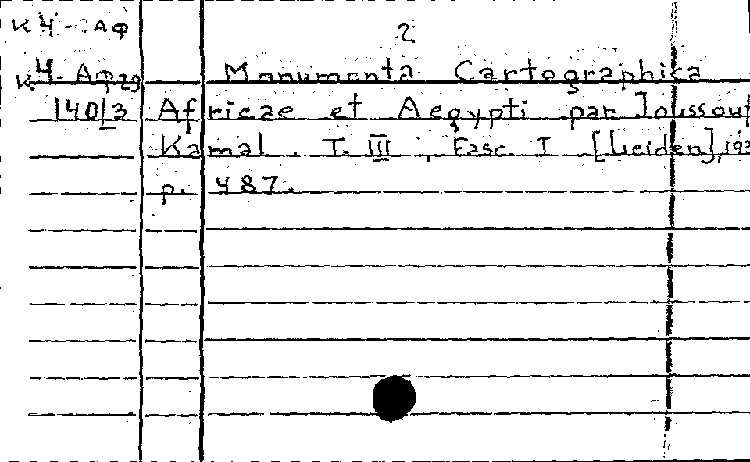 К4-Аф
2
К4-Аф29
Monumenta Cartographica
140/3 Africae et Aegypti par Joussouf
Kamal. T. III, Fasc. I [Leiden], 193
p. 487.